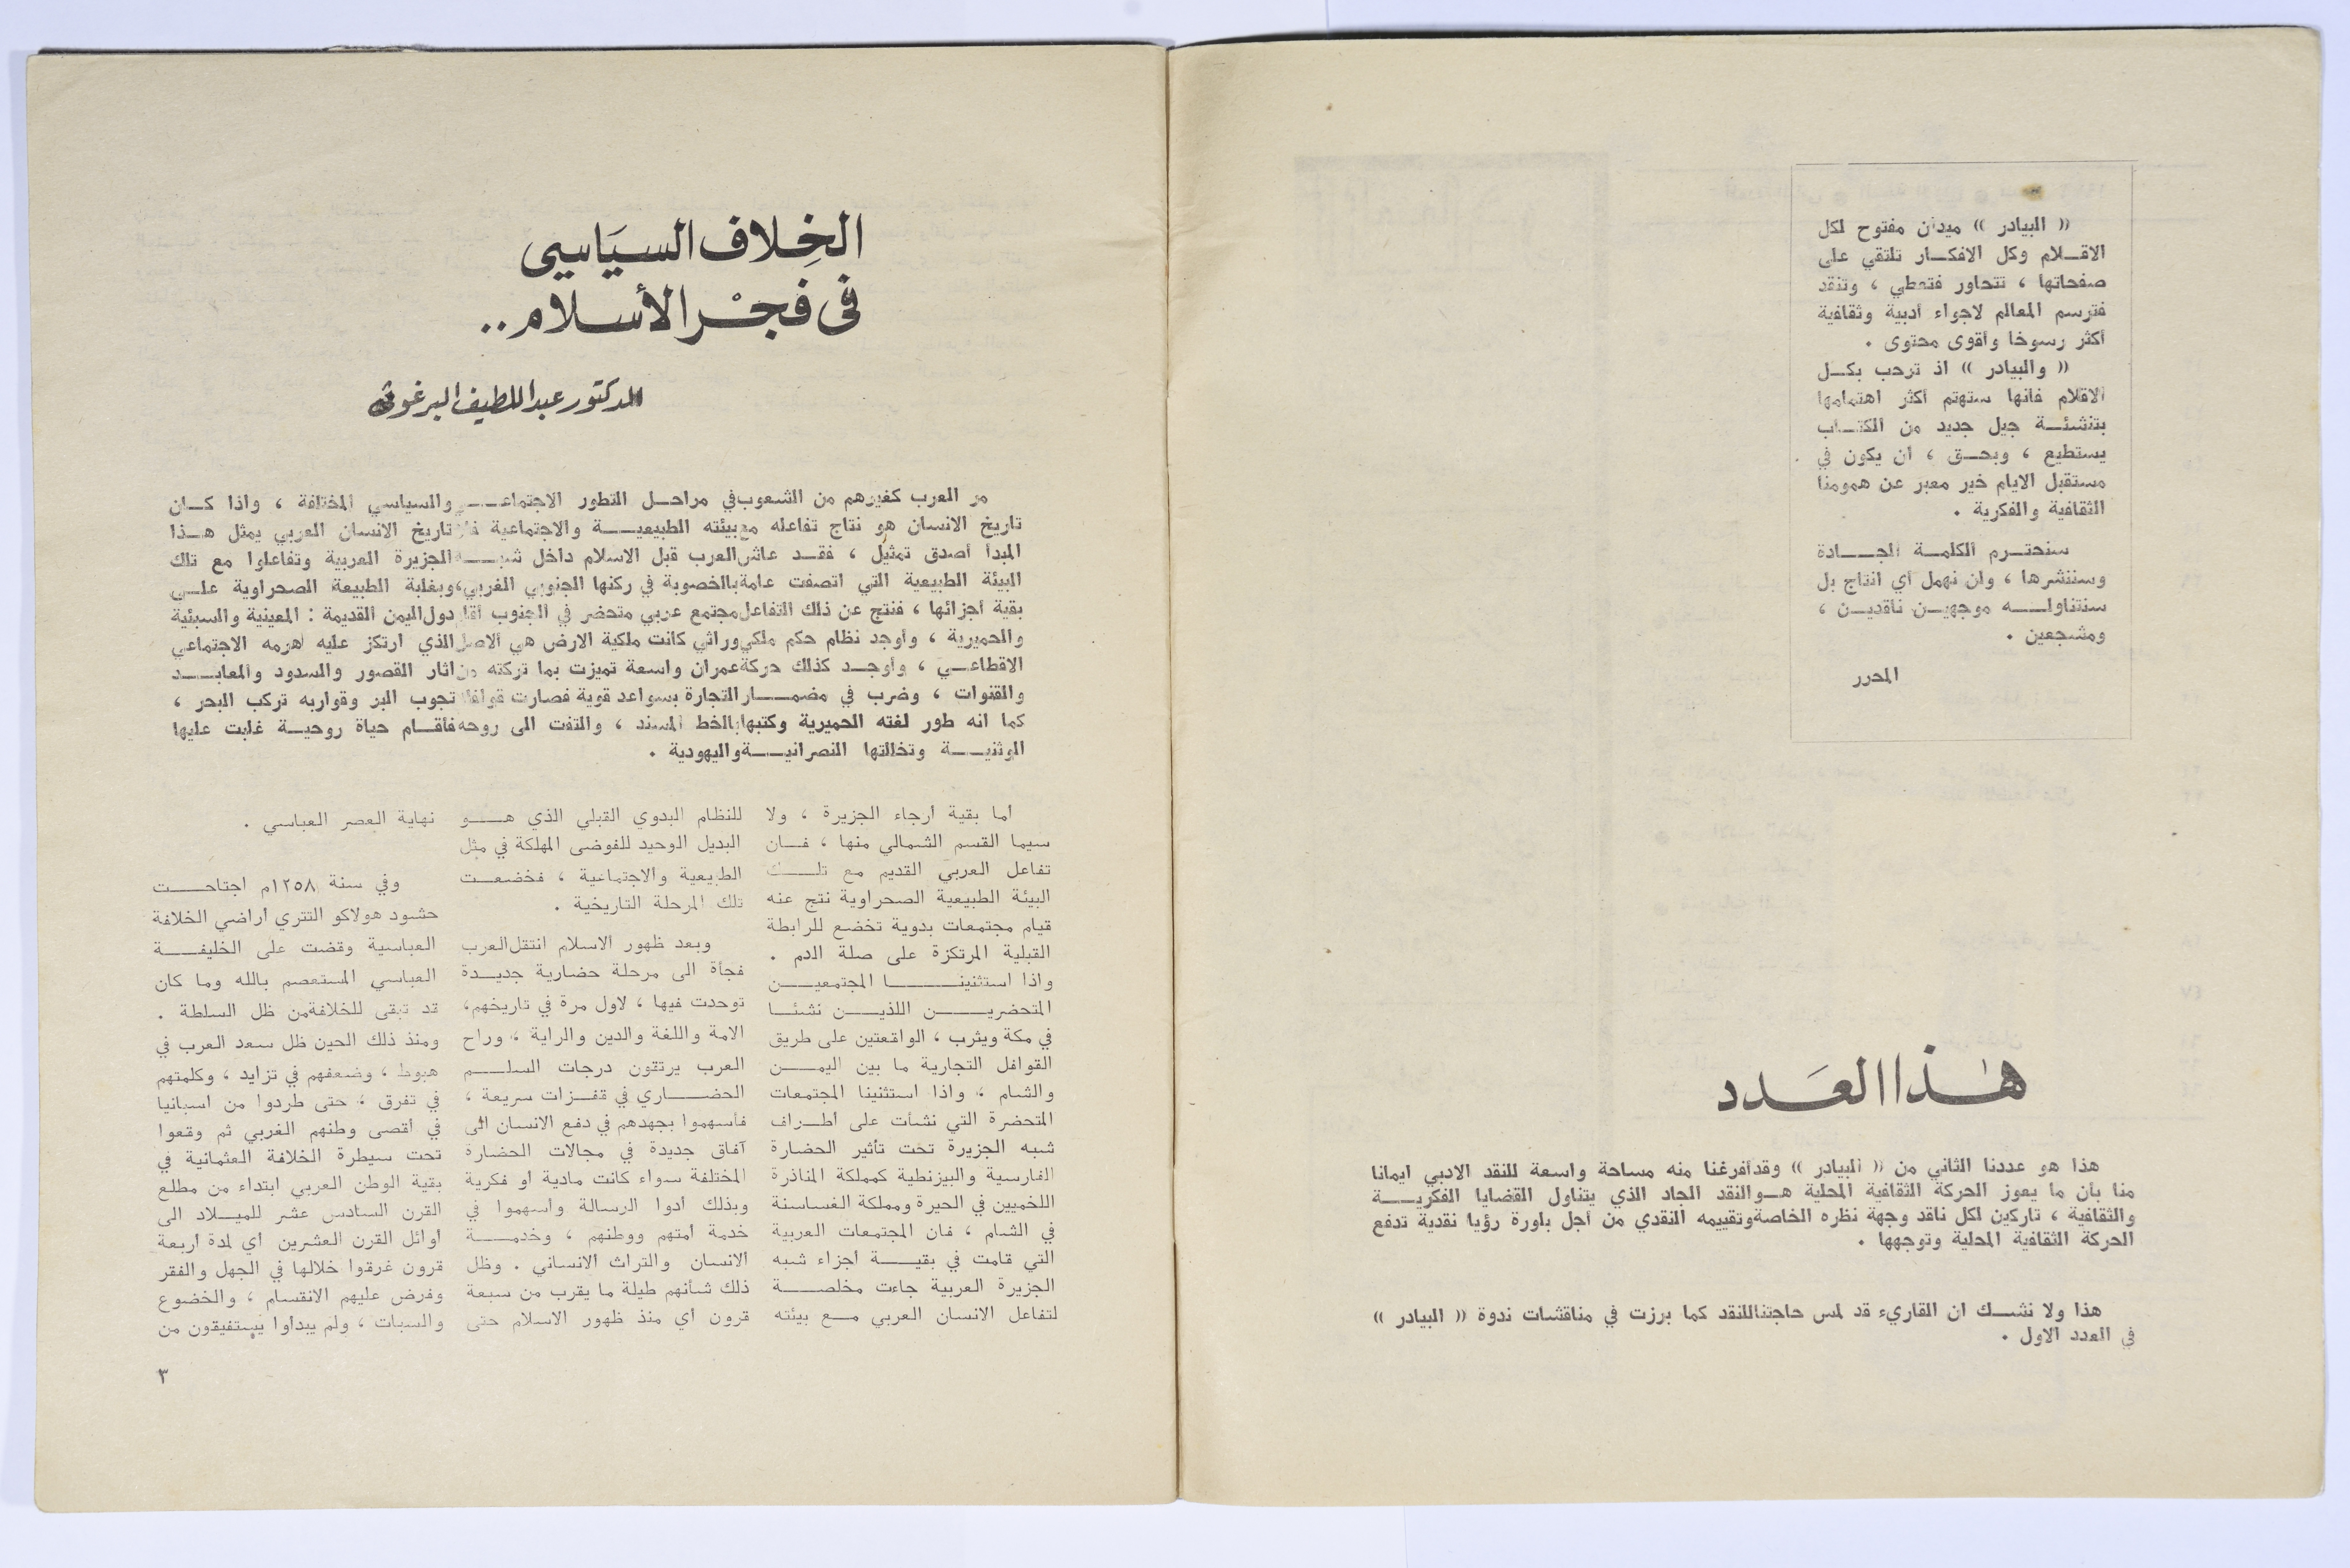 « البيادر » ميدان مفتوح لكل
الاقـــلام وكل الافكـــار تلتقي على
صفحاتها ، تتحاور فتعطي ، وتنقد
فترسم المعالم لاجواء أدبية وثقافية
أكثر رسوخا وأقوى محتوى .
« والبيادر » اذ ترحب بكـــل
الاقلام فانها ستهتم أكثر اهتمامها
بتنشئـــة جيل جديد من الكتـــاب
يستطيع ، وبحـــق ، ان يكون في
مستقبل الايام خير معبر عن همومنا
الثقافية والفكرية .
سنحتـــرم الكلمـــة الجـــادة
وسننشرها ، ولن نهمل أي انتاج بل
سنتناولـــه موجهيـــن ناقديـــن ،
ومشجعين .
المحرر
هذا العدد
هذا هو عددنا الثاني من « البيادر » وقد أفرغنا منه مساحة واسعة للنقد الادبي ايمانا
منا بأن ما يعوز الحركة الثقافية المحلية هـــو النقد الجاد الذي يتناول القضايا الفكريـــة
والثقافية ، تاركين لكل ناقد وجهة نظره الخاصة وتقييمه النقدي من أجل بلورة رؤيا نقدية تدفع
الحركة الثقافية المحلية وتوجهها .
هذا ولا نشـــك ان القاريء قد لمس حاجتنا للنقد كما برزت في مناقشات ندوة « البيادر »
في العدد الاول .
الخِلاف السيَاسيى
فى فجْر الأسلام ..
الدكتور عبد اللطيف البرغوثى
مر العرب كغيرهم من الشعوب في مراحـــل التطور الاجتماعـــي والسياسي المختلفة ، واذا كـــان
تاريخ الانسان هو نتاج تفاعله مع بيئته الطبيعيـــة والاجتماعية فان تاريخ الانسان العربي يمثل هـــذا
المبدأ أصدق تمثيل ، فقـــد عاش العرب قبل الاسلام داخل شبـــه الجزيرة العربية وتفاعلوا مع تلك
البيئة الطبيعية التي اتصفت عامة بالخصوبة في ركنها الجنوبي الغربي، وبغلبة الطبيعة الصحراوية علـــى
بقية أجزائها ، فنتج عن ذلك التفاعل مجتمع عربي متحضر في الجنوب أقام دول اليمن القديمة : المعينية والسبئية
والحميرية ، وأوجد نظام حكم ملكي وراثي كانت ملكية الارض هي الاصل الذي ارتكز عليه اهرمه الاجتماعي
الاقطاعـــي ، وأوجـــد كذلك حركة عمران واسعة تميزت بما تركته من اثار القصور والسدود والمعابـــد
والقنوات ، وضرب في مضمـــار التجارة بسواعد قوية فصارت قوافله تجوب البر وقواربه تركب البحر ،
كما انه طور لغته الحميرية وكتبها بالخط المسند ، والتفت الى روحه فأقـــام حياة روحيـــة غلبت عليها
الوثنيـــة وتخالتها النصرانيـــة واليهودية .
أما بقية أرجاء الجزيرة ، ولا
سيما القسم الشمالي منها ، فـــان
تفاعل العربي القديم مع تلـــك
البيئة الطبيعية الصحراوية نتج عنه
قيام مجتمعات بدوية تخضع للرابطة
القبلية المرتكزة على صلة الدم .
واذا استثنينـــا المجتمعيـــن
المتحضريـــن اللذيـــن نشئـــا
في مكة ويثرب ، الواقعتين على طريق
القوافل التجارية ما بين اليمـــن
والشام ، واذا استثنينا المجتمعات
المتحضرة التي نشأت على أطـــراف
شبه الجزيرة تحت تأثير الحضارة
الفارسية والبيزنطية كمملكة المناذرة
اللخميين في الحيرة ومملكة الغساسنة
في الشام ، فان المجتمعات العربية
التي قامت في بقيـــة أجزاء شبه
الجزيرة العربية جاءت مخلصـــة
لتفاعل الانسان العربي مـــع بيئته
للنظام البدوي القبلي الذي هـــو
البديل الوحيد للفوضى المهلكة في مثل
الطبيعية والاجتماعية ، فخضعـــت
تلك المرحلة التاريخية .
وبعد ظهور الاسلام انتقل العرب
فجأة الى مرحلة حضارية جديـــدة
توحدت فيها ، لاول مرة في تاريخهم،
الامة واللغة والدين والراية ، وراح
العرب يرتقون درجات السلـــم
الحضـــاري في قفـــزات سريعة ،
فأسهموا بجهدهم في دفع الانسان الى
آفاق جديدة في مجالات الحضارة
المختلفة سواء كانت مادية او فكرية
وبذلك أدوا الرسالة وأسهموا في
خدمة أمتهم ووطنهم ، وخدمـــة
الانسان والتراث الانساني . وظل
ذلك شأنهم طيلة ما يقرب من سبعة
قرون اي منذ ظهور الاسلام حتى
نهاية العصر العباسي .
وفي سنة ١٢٥٨م اجتاحـــت
حشود هولاكو التتري اراضي الخلافة
العباسية وقضت على الخليفـــة
العباسي المستعصم بالله وما كان
قد تبقى للخلافة من ظل السلطة .
ومنذ ذلك الحين ظل سعد العرب في
هبوط ، وضعفهم في تزايد ، وكلمتهم
في تفرق ، حتى طردوا من اسبانيا
في أقصى وطنهم الغربي ثم وقعوا
تحت سيطرة الخلافة العثمانية في
بقية الوطن العربي ابتداء من مطلع
القرن السادس عشر للميـــلاد الى
أوائل القرن العشرين اي لمدة أربعة
قرون غرقوا خلالها في الجهل والفقر
وفرض عليهم الانقسام ، والخضوع
والسبات ، ولم يبدأوا يستفيقون من
٣